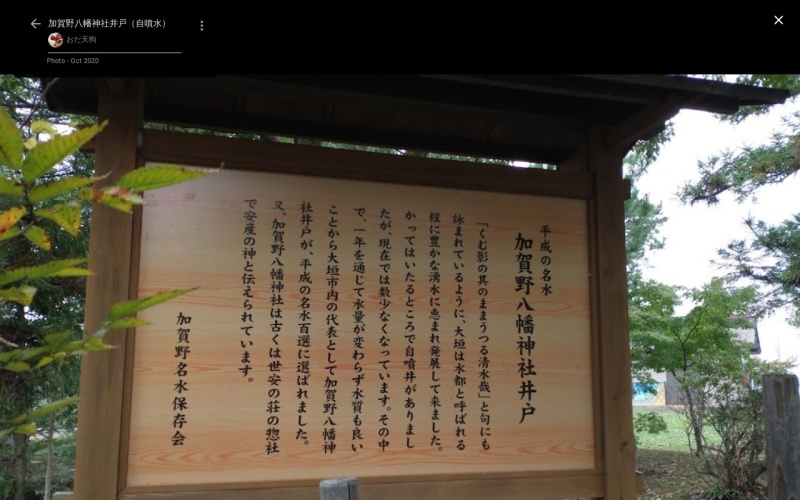 加賀野八幡神社井戸（自噴水）
おだ天狗
Photo - Oct 2020
平成の名水
加賀野八幡神社井戸
「くむ影の其のままうつる清水哉」と句にも
詠まれているように、大垣は水都と呼ばれる
程に豊かな湧水に恵まれ発展して来ました。
かってはいたるところで自噴井がありまし
たが、現在では数少なくなっています。その中
で、一年を通じて水量が変わらず水質も良い
ことから大垣市内の代表として加賀野八幡神
社井戸が、平成の名水百選に選ばれました。
又、加賀野八幡神社は古くは世安の荘の惣社
で安産の神と伝えられています。
加賀野名水保存会